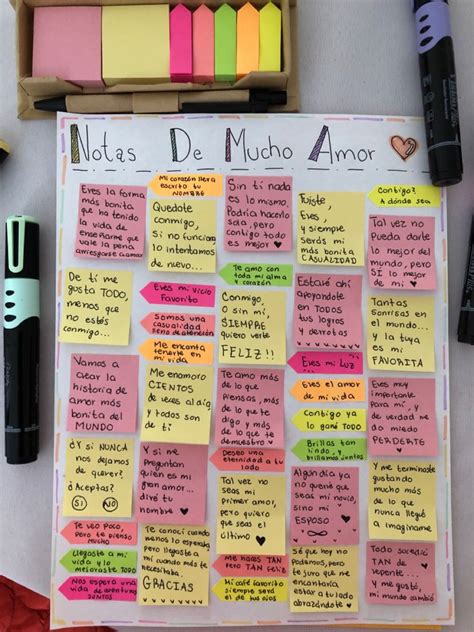 Notas De Mucho Amor
Eres la forma
más bonita
que ha tenido
la vida de
enseñarme que
vale la pena
arriesgarse a amar
De ti me
gusta TODO,
menos que
no estés
conmigo...
Vamos a
crear la
historia de
amor más
bonita del
MUNDO
¿Y si NUNCA
nos dejamos
de querer?
¿Aceptas?
SI NO
Te veo poco,
pero te pienso
mucho
Llegaste a mi
vida y lo
mejoraste TODO
Nos espera una
vida de aventuras
JUNTOS
Mi corazón lleva
escrito tu
NOMBRE
Quedate
conmigo,
Si no funciona
lo intentamos
de nuevo...
Eres mi vicio
Favorito
Somos una
casualidad
llena de intención
Me encanta
tenerte en
mi vida
Me enamoro
CIENTOS
de veces al dia
y todos son
de ti
Y si me
preguntan
quien es mi
gran amor...
diré tu
nombre
Te conocí cuando
menos lo esperaba,
pero llegaste a
mi cuando más te
necesitaba
GRACIAS
Sin tí nada
es lo mismo,
Podría hacerlo
sola, pero
contigo todo
es mejor
Te amo con
toda mi alma
y corazón
Conmigo,
O sin mi,
SIEMPRE
quiero verte
FELIZ!!
Te amo más
de lo que
piensas, más
de lo que te
digo y más
de lo que te
demuestro
Deseo una
eternidad a tu
lado
Tal vez no
seas mi
primer amor,
pero quiero
que seas el
último
Me haces TAN
pero TAN feliz
Mi café favorito
siempre será
el de tus ojos
Fuiste,
Eres,
y siempre
serás mi
más bonita
CASUALIDAD
Estaré ahí
apoyandote
en TODOS
tus logros
y derrotas
Eres mi Luz
Eres el amor
de mi vida
Contigo ya
lo gané TODO
Brillas tan
lindo, y
brillamos juntos
Algún día ya
no querré que
seas mi novio,
sino mi
ESPOSO
Sé que hoy no
podemos, pero
se que me
encantaría
estar a tu lado
abrazándote
Contigo?
A dónde sea
Tal vez no
Pueda darte
lo mejor del
mundo, pero
SÍ lo mejor de
mi
Tantas
sonrisas en
el mundo...
y la tuya
es mi
FAVORITA
Eres muy
importante
para mí, y
de verdad me
da miedo
PERDERTE
Y me terminaste
gustando
mucho más
de lo que
nunca llegué
a imaginarme
Todo sucedió
TAN de
repente...
y me gustó,
mi mundo
cambió